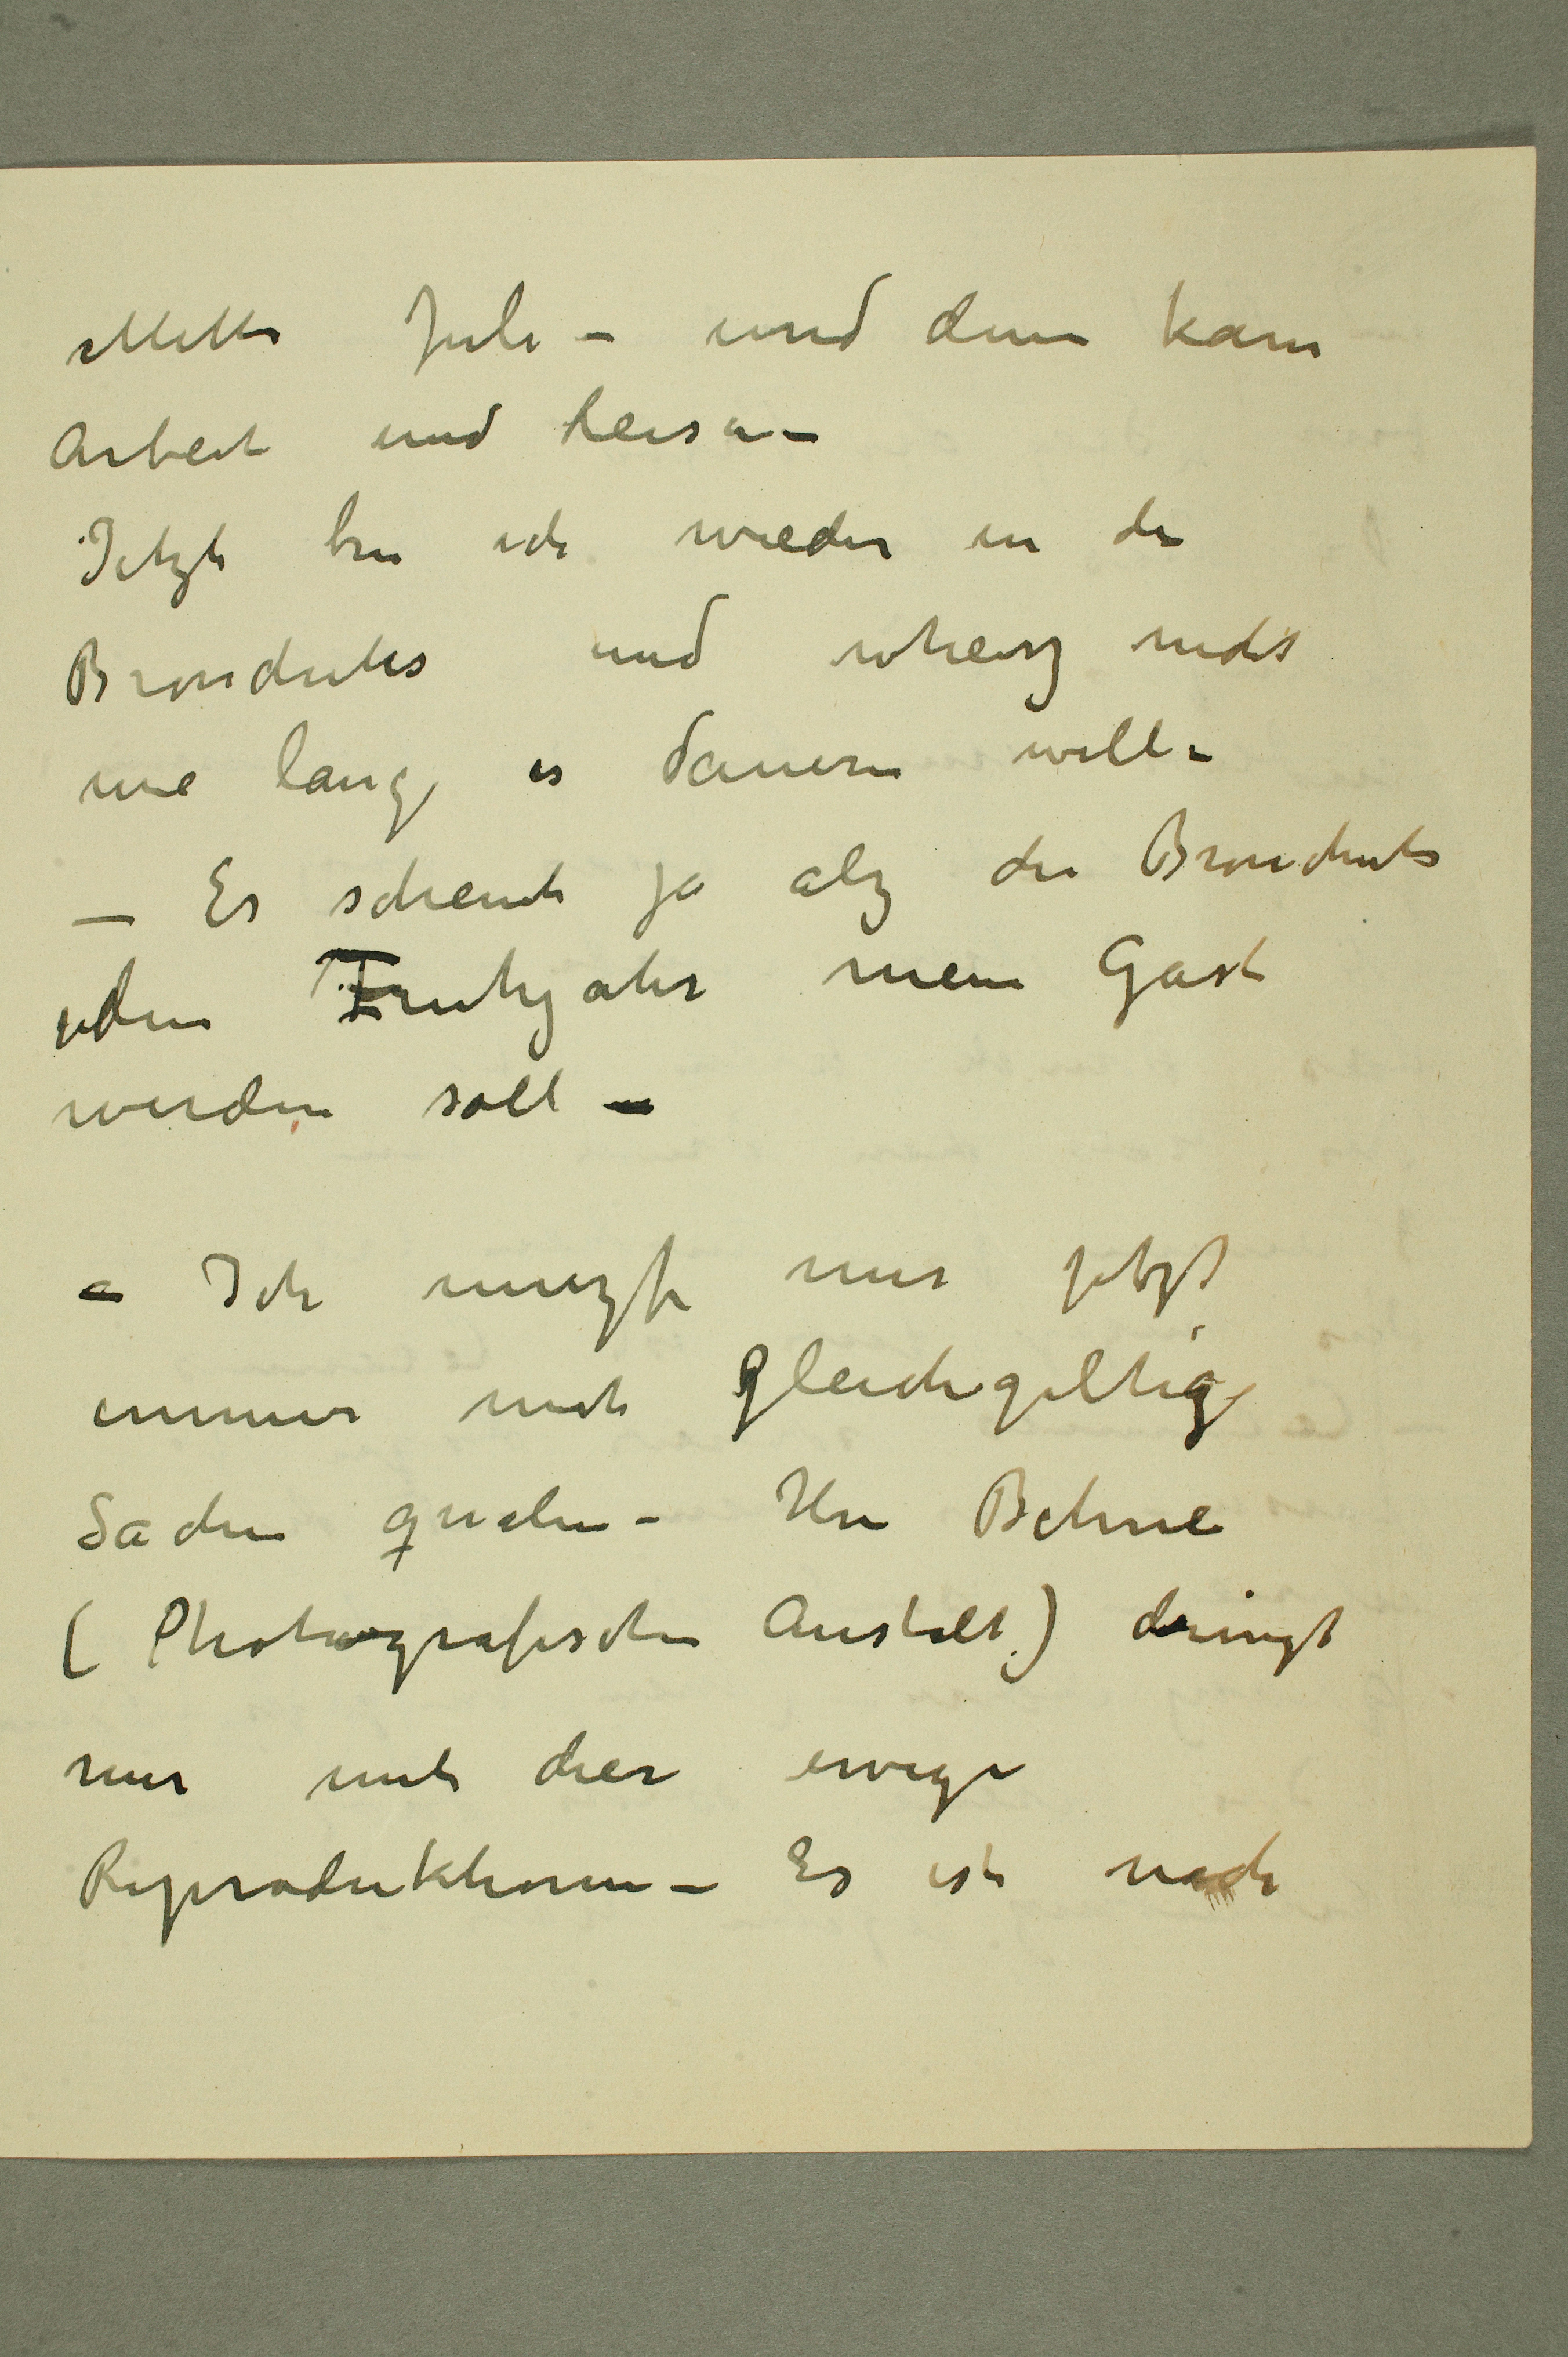 Mitte Juli – und dann kam
Arbeit und Reisen –
Jetzt bin ich wieder in der
Bronchitis und wheisz nicht
wie lange es dauern will –
– Es scheint ja alz die Bronchitis
jeden Fruhjahr mein Gast
werden soll –
– Ich muszte mir jetzt
immer mit gleichgiltige
Sachen qualen – Herr Behne
(Photografischen Anstalt) dringt
mir mit dier ewige
Reproduktionen – Es ist nach